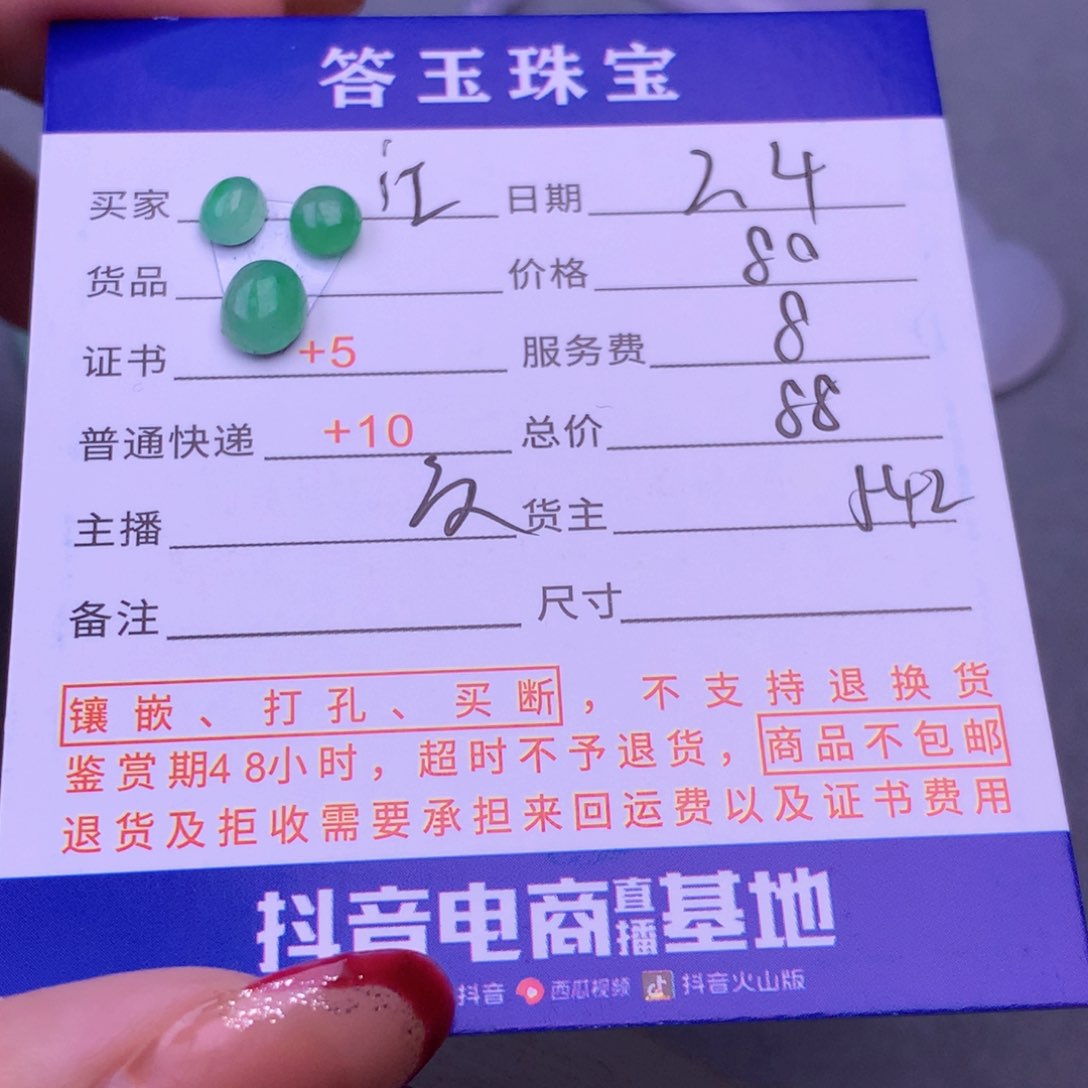 答玉珠宝
买家 江 日期 24
货品 价格 80
证书 +5 服务费 8
普通快递 +10 总价 88
主播 货主 142
备注 尺寸
镶嵌、打孔、买断，不支持退换货
鉴赏期48小时，超时不予退货，商品不包邮
退货及拒收需要承担来回运费以及证书费用
抖音电商直播基地
抖音 西瓜视频 抖音火山版